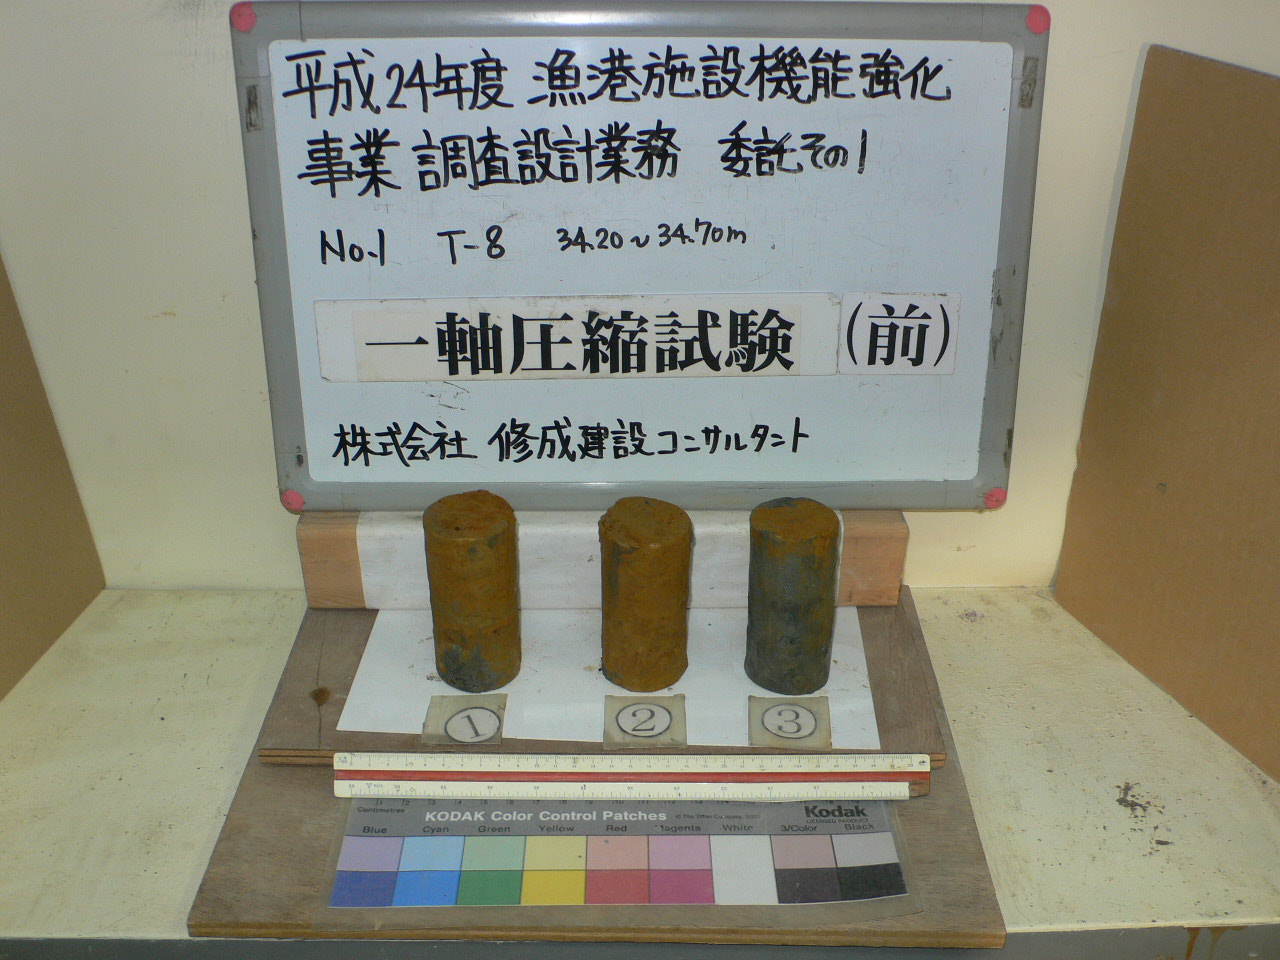 平成24年度 漁港施設機能強化
事業 調査設計業務 委託その1
No.1 T-8 34.20~34.70m
一軸圧縮試験 (前)
株式会社 修成建設コンサルタント
① ② ③
Centimetres
KODAK Color Control Patches
Kodak
LICENSED PRODUCT
Blue Cyan Green Yellow Red Magenta White 3/Color Black